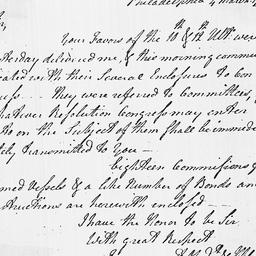 Philadelphia 4 March
Sir,
Your Favors of the 10th & 12th Ultº were
terday delivered me, & this morning commu
icated with their Several Enclosures to Con
ress. — they were referred to Committees,
hatever Resolution Congress may enter
to on the Subject of them shall be immedi
tely transmitted to You —
Eighteen Commissions f
med Vessels & a like Number of Bonds an
structions are herewith enclosed —
I have the Honor to be Sir
With great Respect